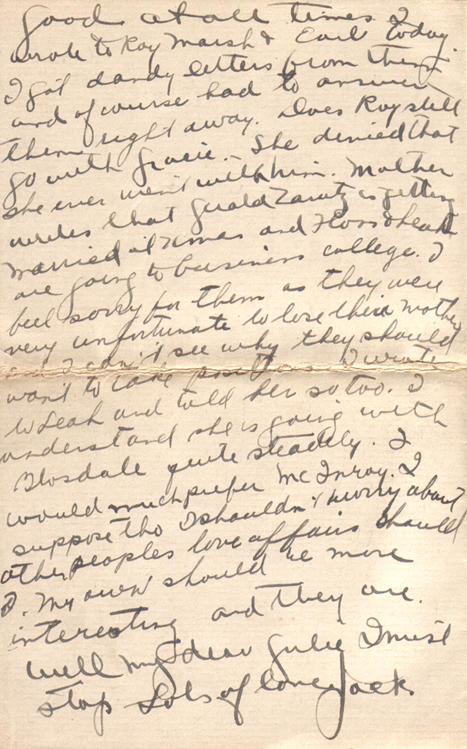 Good at all times. I
wrote to Roy Marsh & Earl today.
I got dandy letters from them
and of course had to answer
them right away. Does Roy still
go with Gracie. She denied that
she ever went with him. Mother
writes that Gerald is getting
married at Xmas and Floss & Leah
are going to business college. I
feel sorry for them as they were
very unfortunate to lose their mother
and I can't see why they should
want to take positions. I wrote
to Leah and told her so too. I
understand she is going with
quite steadily. I
would much prefer McInroy. I
suppose tho I shouldn't worry about
other peoples love affairs should
I. My own should be more
interesting and they are.
Well my dear Julie I must
stop Lots of love Jack